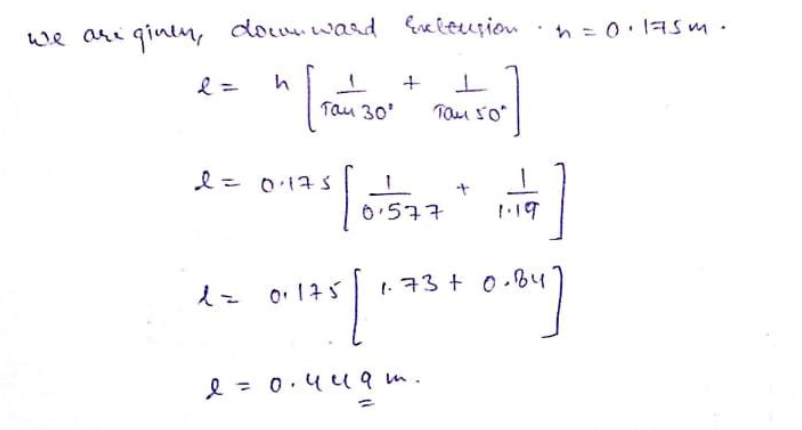 we are given, downward Extension · h = 0.175m.
l = h [ 1/Tan 30° + 1/Tan 50° ]
l = 0.175 [ 1/0.577 + 1/1.19 ]
l = 0.175 [ 1.73 + 0.84 ]
l = 0.449 m.